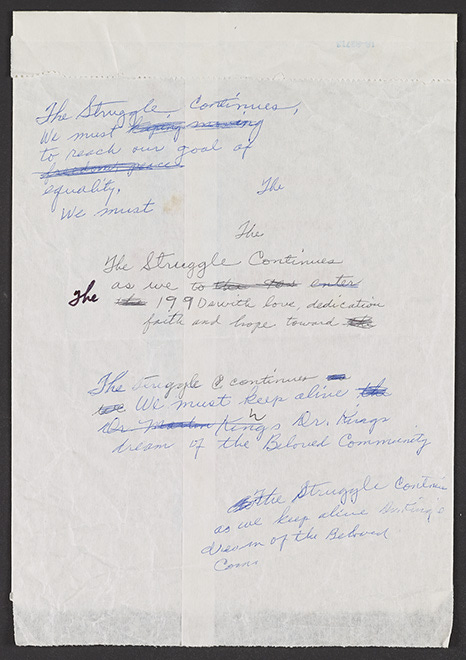 The Struggle Continues,
We must keping moving
to reach our goal of
freedom, peace
equality.
The
We must
The
The Struggle Continues
as we to enter
The the 1990s with love, dedication
faith and hope toward the
The Struggle C continues
We must keep alive the
Dr Martin King's Dr. Kings
dream of the Beloved Community
The Struggle Continues
as we keep alive
dream of the Beloved
Comm